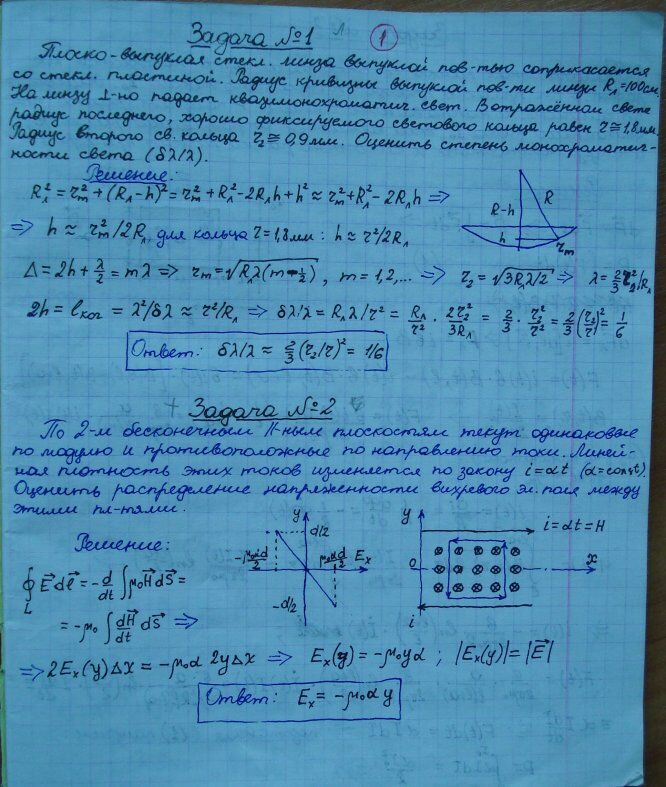 Задача №1
1
Плоско-выпуклая стекл. линза выпуклой пов-тью соприкасается
со стекл. пластиной. Радиус кривизны выпуклой пов-ти линзы Rл=100см.
На линзу ⊥-но падает квазимонохроматич. свет. В отражённом свете
радиус последнего, хорошо фиксируемого светового кольца равен r≅1,8мм.
Радиус второго св. кольца r₂≅0,9мм. Оценить степень монохроматич-
ности света (δλ/λ).
Решение:
Rл² = rm² + (Rл-h)² = rm² + Rл² - 2Rлh + h² ≈ rm² + Rл² - 2Rлh ⇒
R-h R h rm
⇒ h ≈ rm²/2Rл, для кольца r=1,8мм: h ≈ r²/2Rл
Δ = 2h + λ/2 = mλ ⇒ rm = √(Rлλ(m-1/2)), m=1,2,... ⇒ r₂ = √(3Rлλ/2) ⇒ λ = 2/3 r₂²/Rл
2h = lког = λ²/δλ ≈ r²/Rл ⇒ δλ/λ = Rлλ/r² = Rл/r² · 2r₂²/3Rл = 2/3 · r₂²/r² = 2/3 (r₂/r)² = 1/6
Ответ: δλ/λ ≈ 2/3 (r₂/r)² = 1/6
Задача №2
По 2-м бесконечным ||-ным плоскостям текут одинаковые
по модулю и противоположные по направлению токи. Линей-
ная плотность этих токов изменяется по закону i=αt (α=const).
Оценить распределение напряженности вихревого эл. поля между
этими пл-тями.
Решение:
y d/2 -μ₀αd/2 μ₀αd/2 Ex -d/2
y i=αt=H 0 x i
∮L E⃗dl⃗ = -d/dt ∫μ₀H⃗dS⃗ =
= -μ₀ ∫ dH⃗/dt dS⃗ ⇒
⇒ 2Ex(y)Δx = -μ₀α 2yΔx ⇒ Ex(y) = -μ₀yα ; |Ex(y)| = |E⃗|
Ответ: Ex = -μ₀αy